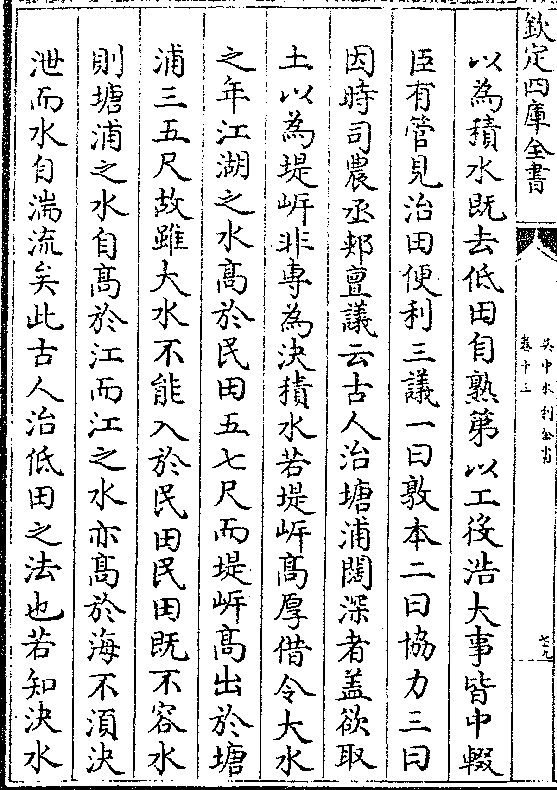 欽定四庫全書
吳中水利全書
卷十三
以為積水既去低田自熟第以工役浩大事皆中輟
臣有管見治田便利三議一曰敦本二曰協力三曰
因時司農丞郟亶議云古人治塘浦闊深者蓋欲取
土以為堤岸非専為決積水若堤岸髙厚借令大水
之年江湖之水髙於民田五七尺而堤岸髙出於塘
浦三五尺故雖大水不能入於民田民田既不容水
則塘浦之水自髙於江而江之水亦髙於海不湏決
泄而水自湍流矣此古人治低田之法也若知決水